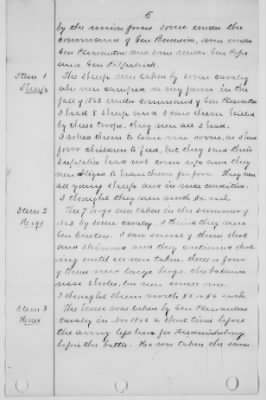 5
by the union forces, some under the
command of Gen some under
Gen Pleasanton and some under Gen Pope
and Gen Kilpatrick.
Item 1 The sheep were taken by some cavalry
Sheep who were camped on my farm in the
fall of 1862 under command of Gen Pleasanton
I had 8 sheep and I saw them killed
by these troops. They were all I had.
I asked them to leave me some, as I had
four children to feed, but they said their
supplies had not come up and they
were obliged to have them for food. They were
all young sheep and in nice condition.
I thought they were worth each.
Item 2 The 7 hogs were taken in the summer of
Hogs 1863 by some cavalry. I think they were
Gen I saw several of them shot
and skinned and they continued shoot-
ing until all were taken, three or four
of them were large hogs, the balance
were shoats,
I thought them worth each.
Item 3 The horse was taken by Gen Pleasanton's
Horse cavalry in Nov 1862 a short time before
the army left here for Fredericksburg,
before the battle. He was taken the same